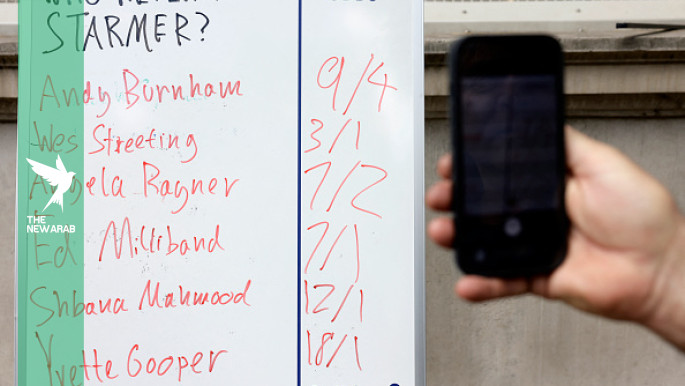 STARMER?
Andy Burnham 9/4
Wes Streeting 3/1
Angela Rayner 7/2
Ed Milliband 7/1
Shbana Mahmood 12/1
Yvette Cooper 18/1
THE
NEW ARAB